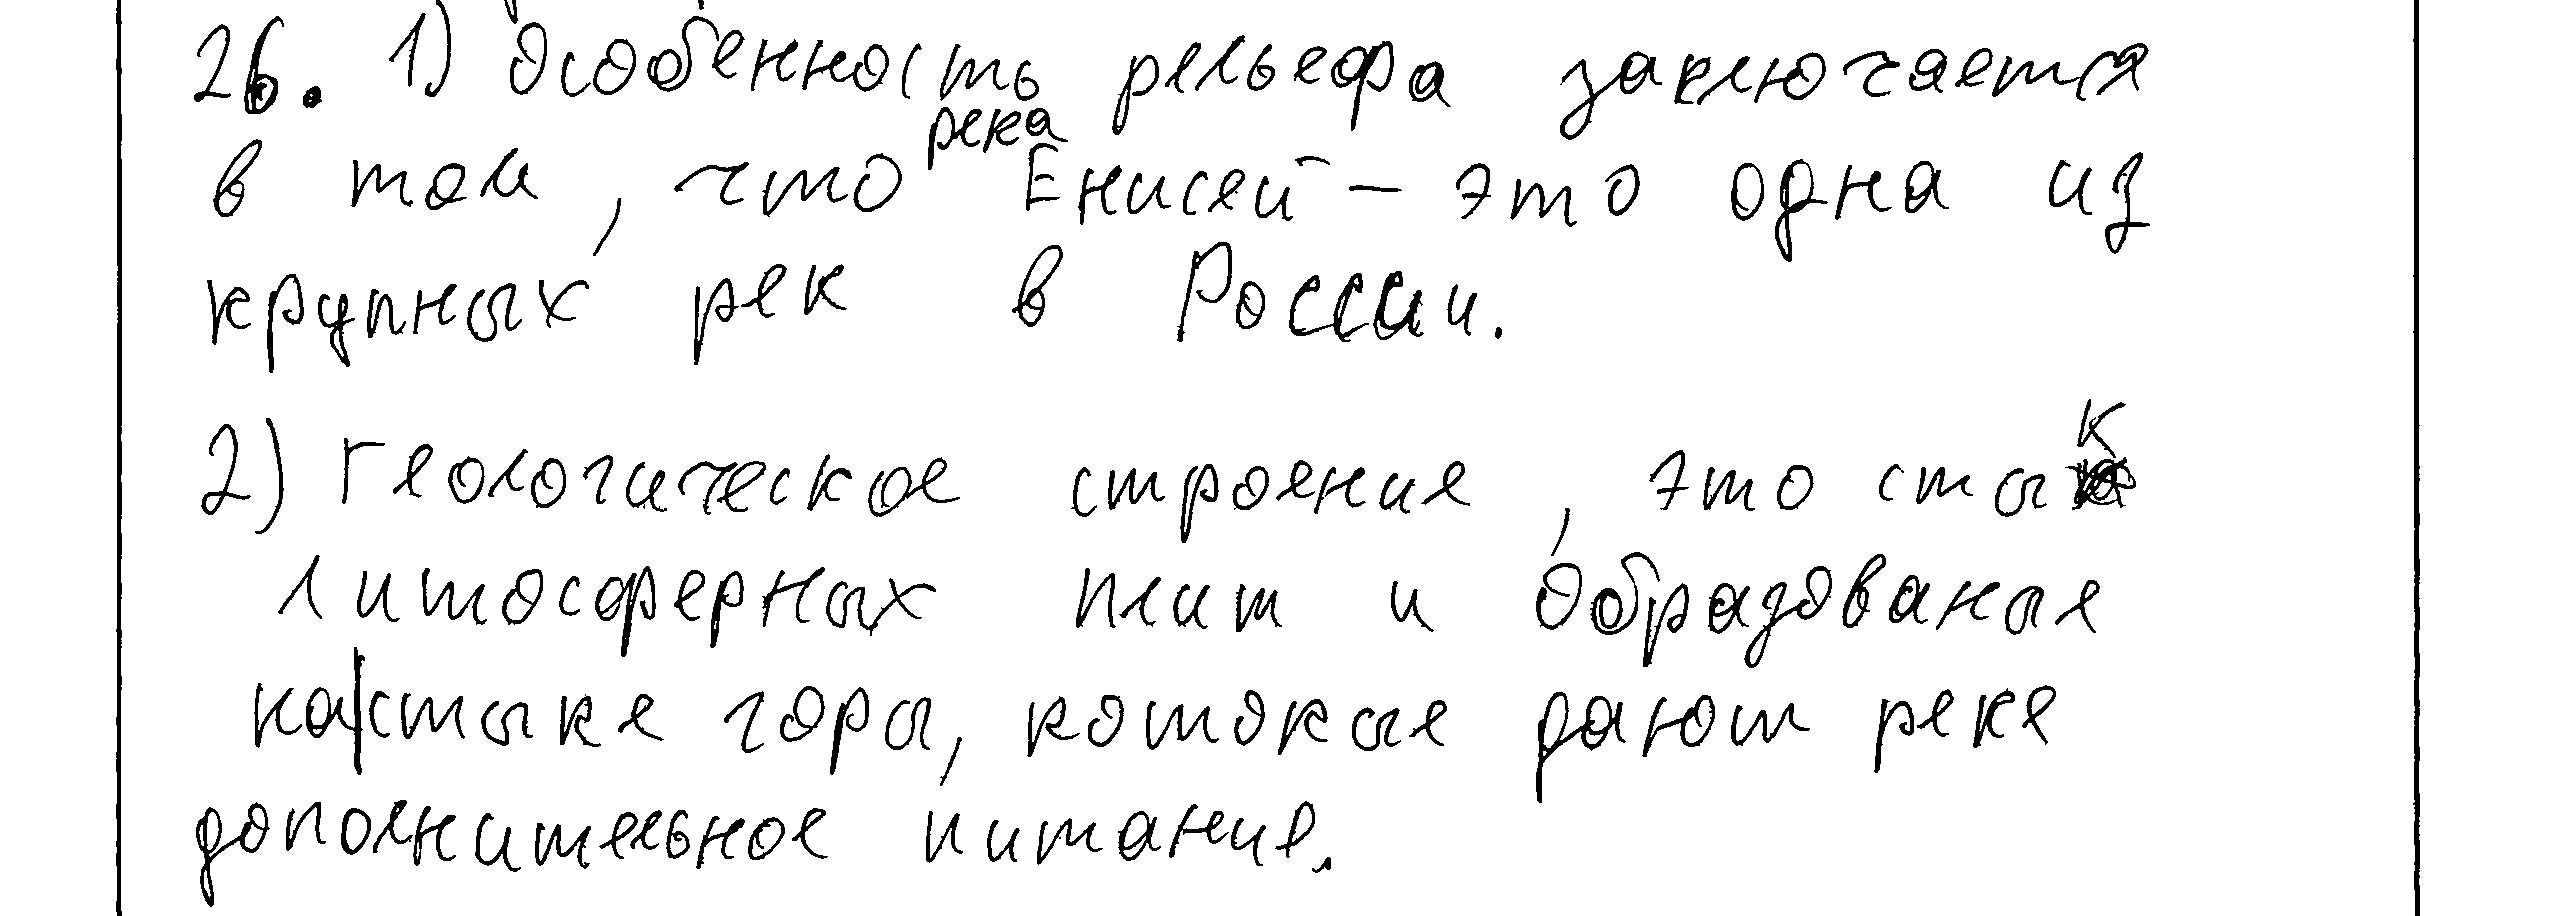 26. 1) Особенность рельефа заключается
в том, что река Енисей - это одна из
крупных рек в России.
2) Геологическое строение, это стык
литосферных плит и образованые
на|стыке горы, котокые дают реке
дополнительное питание.